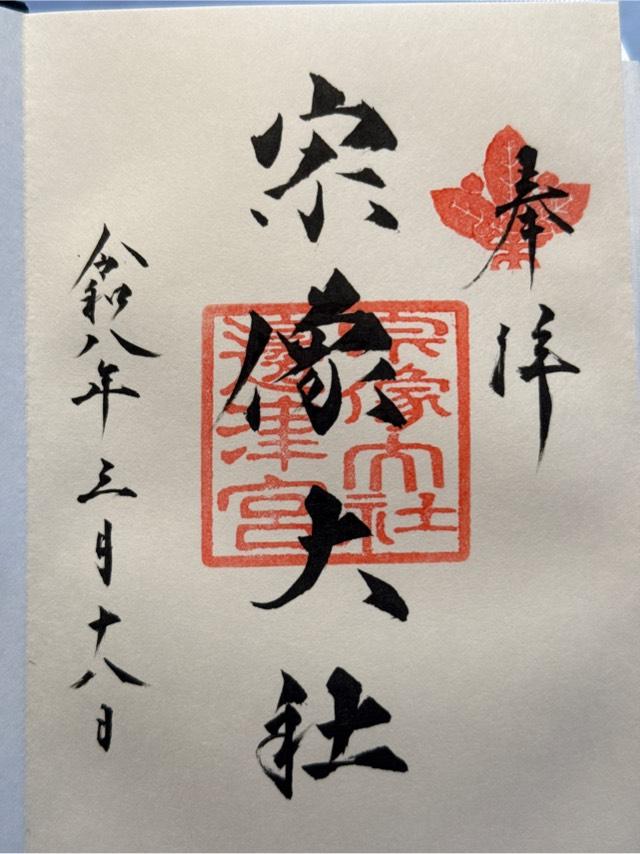 奉拝
宗像大社
宗像大社
邊津宮
令和八年三月十八日